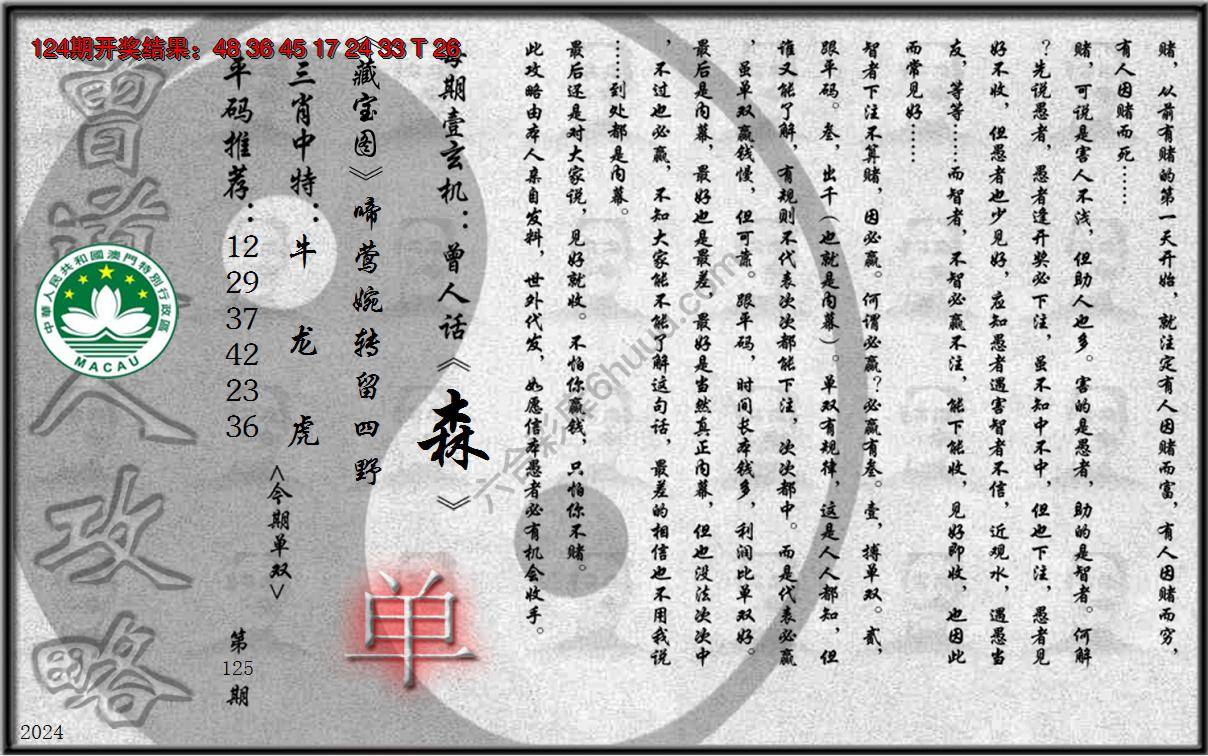 124期开奖结果：48 36 45 17 24 33 T 26
赌，从前有赌的第一天开始，就注定有人因赌而富，有人因赌而穷，
有人因赌而死……
赌，可说是害人不浅，但助人也多。害的是愚者，助的是智者。何解
？先说愚者，愚者逢开奖必下注，虽不知中不中，但也下注，愚者见
好不收，但愚者也少见好，应知愚者遇害智者不信，近观水，遇愚当
友，等等……而智者，不智必赢不注，能下能收，见好即收，也因此
而常见好……
智者下注不算赌，因必赢。何谓必赢？必赢有叁。壹，搏单双。贰，
跟平码。叁，出千（也就是内幕）。单双有规律，这是人人都知，但
谁又能了解，有规则不代表次次都能下注，次次都中。而是代表必赢
，虽单双赢钱慢，但可靠。跟平码，时间长本钱多，利润比单双好。
最后是内幕，最好也是最差，最好是当然真正内幕，但也没法次次中
，不过也必赢，不知大家能不能了解这句话，最差的相信也不用我说
……到处都是内幕。
最后还是对大家说，见好就收。不怕你赢钱，只怕你不赌。
此攻略由本人亲自发料，世外代发，如愿信本愚者必有机会收手。
每期壹玄机：曾人话《森》
《藏宝图》啼莺婉转留四野
三肖中特：牛 龙 虎
平码推荐：12 29 37 42 23 36
<今期单双>
单
第125期
曾道人攻略
中華人民共和國澳門特別行政區
MACAU
2024